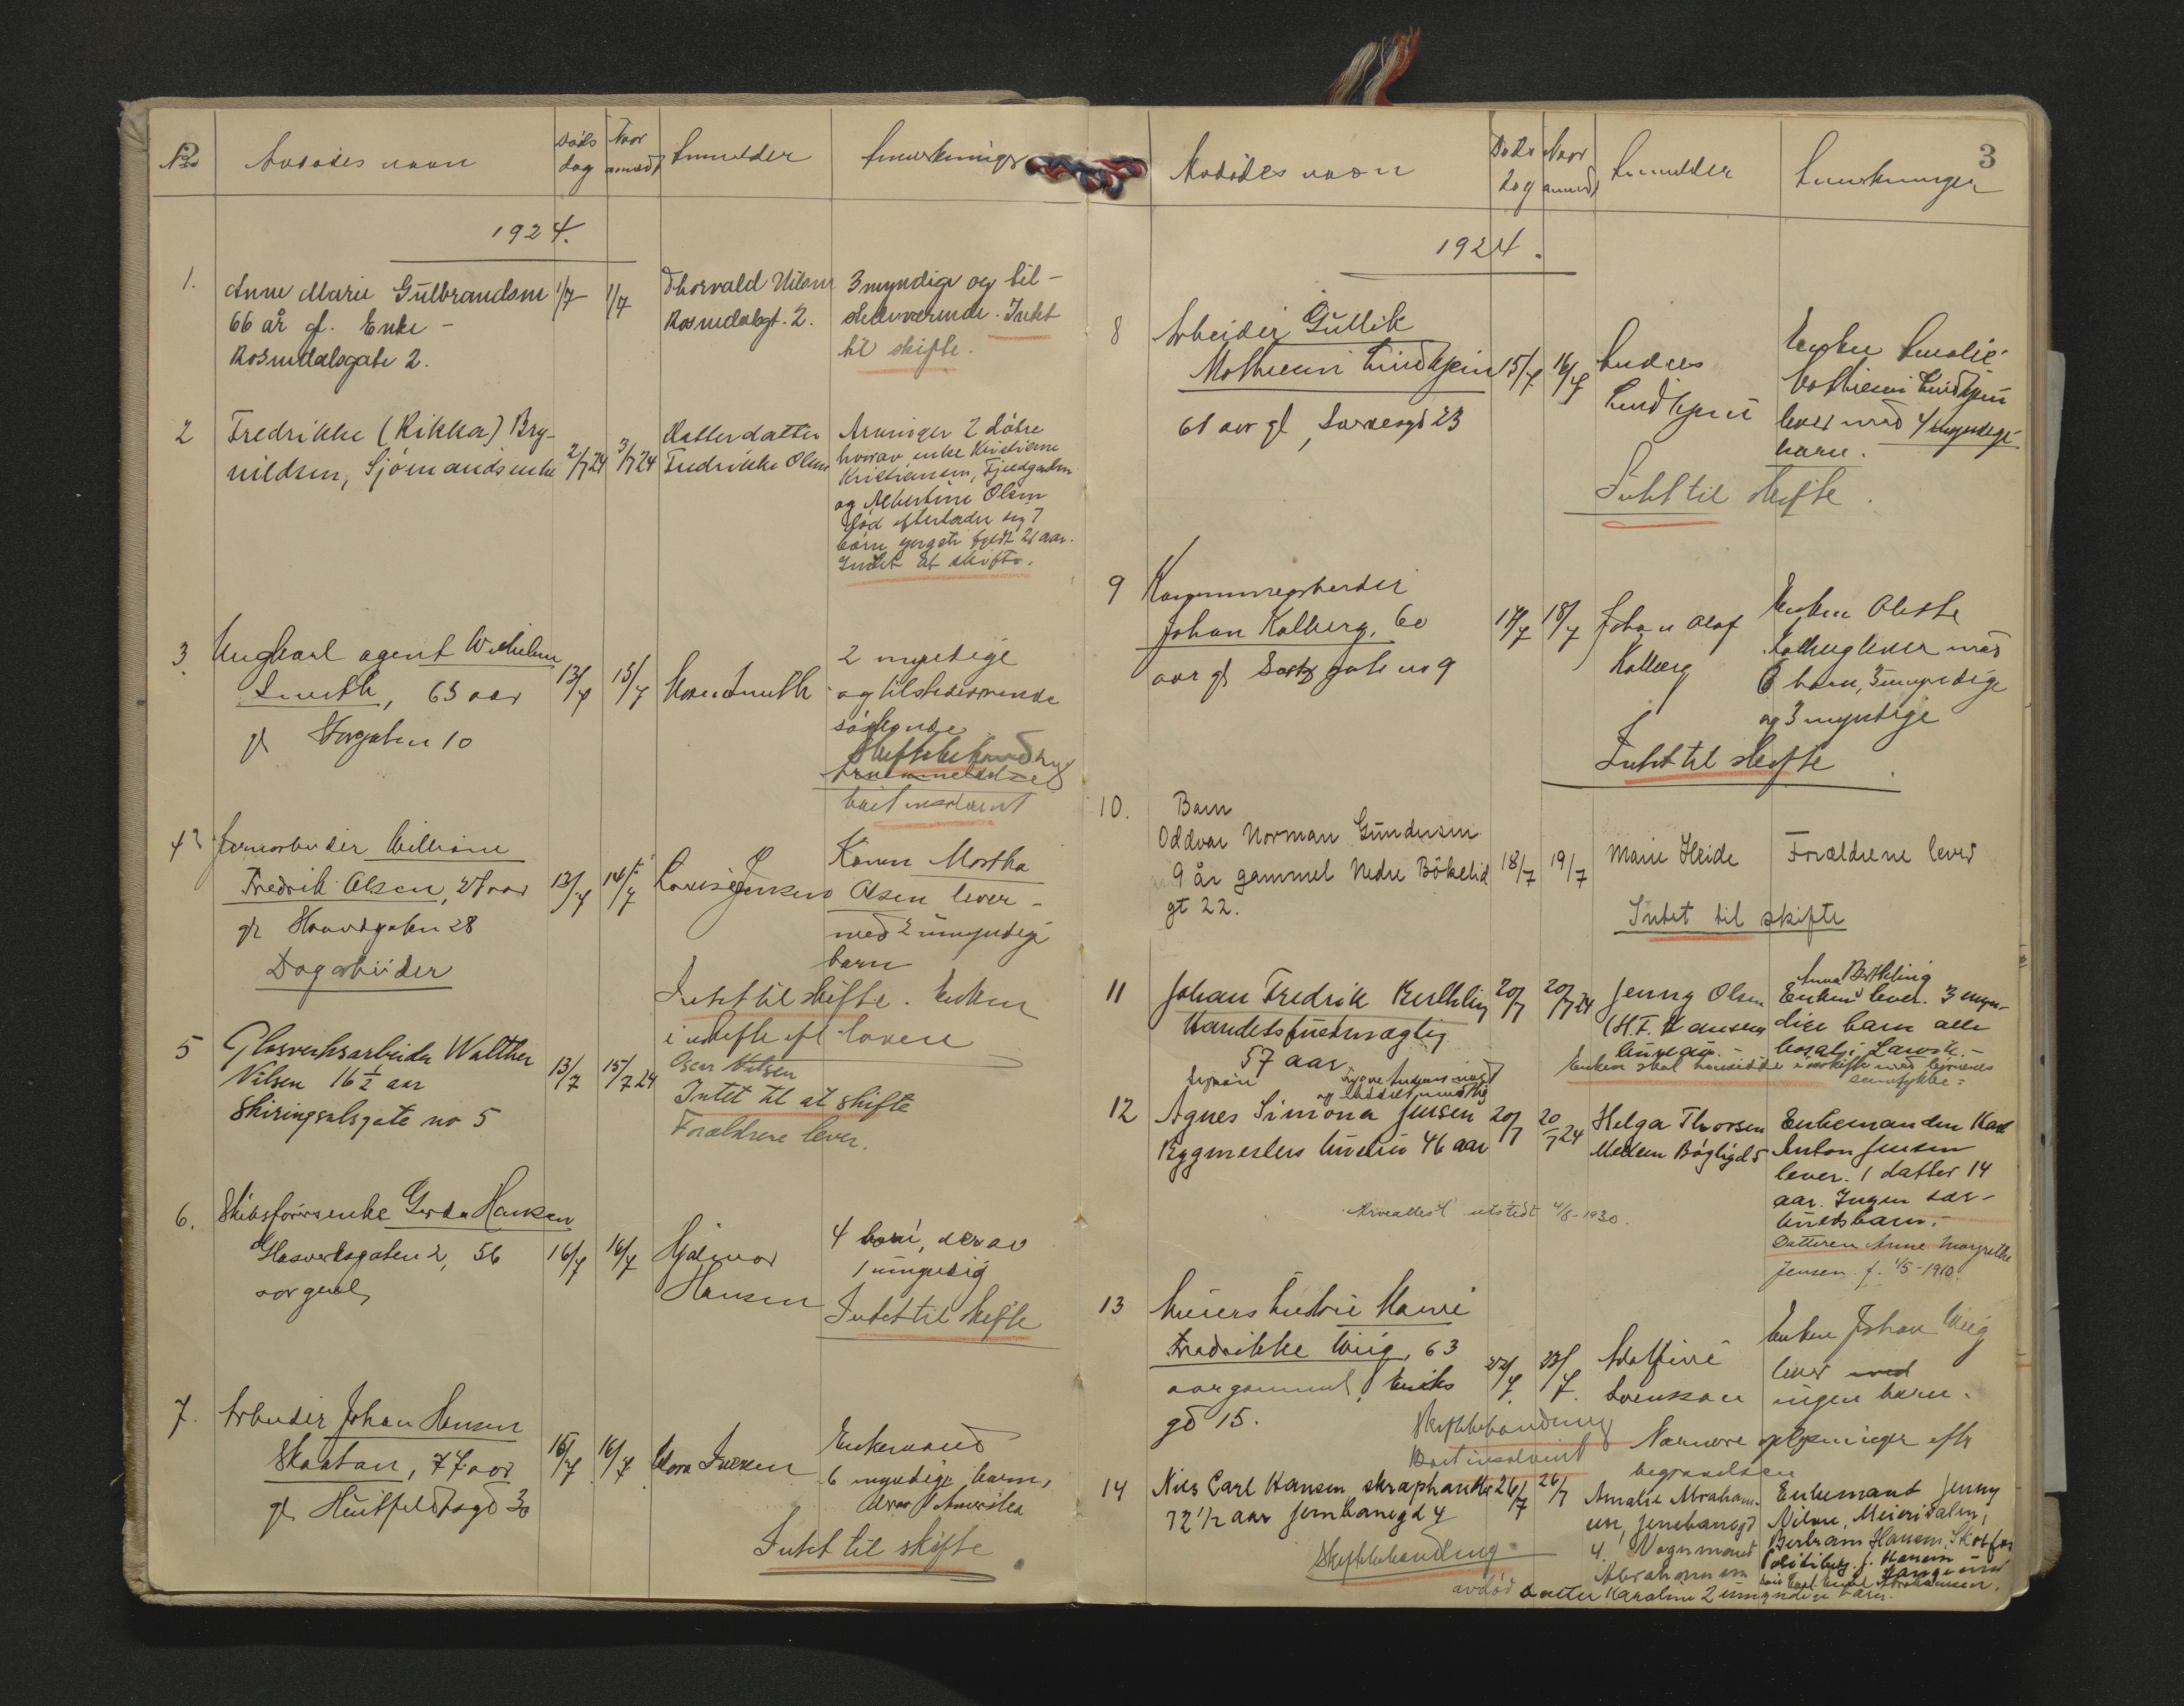 No Avdødes navn Døds dag Naar anmeldt Anmelder Anmerkninger
1924.
1. Anne Marie Gulbrandsen 1/7 1/7 Thorvald Nilsen 3 myndige og til-
66 år gl. Enke - Rosendalsgt. 2. stedeværende. Intet
Rosendalsgate 2. til skifte.
2 Fredrikke (Rikka) Bry- Datterdatter Arvinger 2 døtre
nildsen, Sjømandsenke 2/7 24 3/7 24 Fredrikke Olsen hvorav enke Kristiane
Kristiansen, Fjeldgaden
og Albertine Olsen
død efterlader sig 7
børn yngste fyldt 21 aar.
Intet at skifte.
3. Ungkarl agent Wilhelm 2 myndige
Smith, 63 aar 13/7 15/7 Smith og tilstedeværende
gl Storgaten 10 søskende
Skiftebehandling
boet insolvent
4 Jernarbeider William Karen Martha
Fredrik Olsen, 27 aar 13/7 14/7 Lovise Jensen Olsen lever
gl Havnegaten 28 med 2 umyndige
Dagarbeider barn
Intet til skifte. Enken
i uskifte eft loven
5 Glasverksarbeider Walther 13/7 15/7 24 Oscar Nilsen
Nilsen 16 ½ aar Intet til at skifte
Skiringsalsgate no 5 Forældrene lever.
6. Skibsførerenke Gerda Hansen 4 barn, derav
Glasverksgaten 2, 56 16/7 16/7 Hjalmar 1 umyndig
aar gml Hansen Intet til skifte
7. Arbeider Johan Hansen Enkemand
Skaatan, 77 aar 15/7 16/7 6 myndige barn,
gl Huitfeldtsgd 30 derav 1 Amerika
Intet til skifte
3
Avdødes navn Døds dag Naar anmeldt Anmelder Anmerkninger
1924.
8 Arbeider Gullik Enken Amalie
Mathisen Lindkjen 15/7 16/7 Andreas Mathisen Lindkjen
61 aar gl, 23 Lindkjen lever med 4 myndige
barn.
Intet til skifte.
9 Enken
Johan Kalberg, 60 17/7 18/7 Johan Olaf Kalberg lever med
aar gl gate no 9 Kalberg 6 barn, 3 umyndige
og 3 myndige
Intet til skifte
10. Barn
Oddvar Norman Gundersen
9 år gammel Nedre Bøkelid 18/7 19/7 Marie Heide Forældrene lever
gt 22.
Intet til skifte
11 Johan Fredrik Berthling 20/7 20/7 24 Jenny Olsen Anna Berthling
Handelsfuldmægtig (H.F. Hansens Enken lever. 3 myn-
57 aar bureau. - dige barn alle
bosat i Larvik. -
Enken skal hensidde i uskifte med børnenes
samtykke =
12 Agnes Simona Jensen 20/7 20/7 24 Helga Thorsen Enkemanden Karl
Bygmesters hustru 46 aar Mellem Bøgligd 5 Anton Jensen
lever. 1 datter 14
aar. Ingen sær-
kuldsbarn. -
Arveattest utstedt 4/8-1930.
Datteren Anne Margrethe
Jensen f. 1/5-1910.
13 Murers hustru Marie
Fredrikke Wiig, 63 22/7. 23/7. Adolfine Johan Wiig
aar gammel, Eriks Svenskan lever med
gd 15. ingen barn.
Skiftebehandling
Boet insolvent Nærmere oplysninger efter
begravelsen
14 Nils Carl Hansen skraphandler 26/7 26/7 Amalie Abraham- Enkemand Jenny
72 1/2 aar Jernbanegd 4 sen, Jernbanegd Nilsen, Meieridalen,
4. Vognmand Bertram Hansen, Skotfos
Skiftebehandling Abrahamsen
avdød datter Karoline 2 umyndige barn.